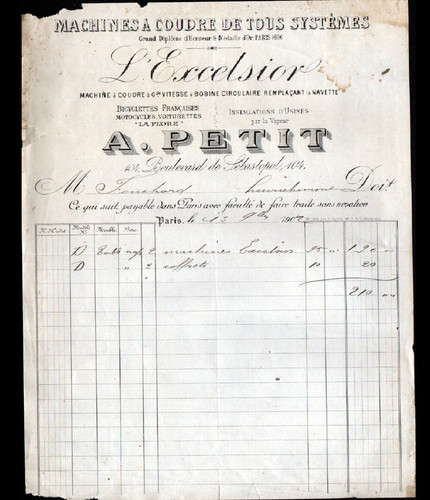 MACHINES À COUDRE DE TOUS SYSTÈMES
Grand Diplôme d'Honneur & Médaille d'Or PARIS 1896
L'Excelsior
MACHINE À COUDRE À Gde VITESSE À BOBINE CIRCULAIRE REMPLAÇANT la NAVETTE
BICYCLETTES FRANÇAISES
MOTOCYCLES, VOITURETTES
"LA FLORE"
INSTALLATIONS D'USINES
par la Vapeur
A. PETIT
104, Boulevard de Sébastopol, 104.
M Doit
Ce qui suit, payable dans Paris avec faculté de faire traite sans novation
Paris, le 13 9bre 1902
D 2 machines Excelsior 95 " 190 "
D " 2 coffrets 10 20 "
210 "